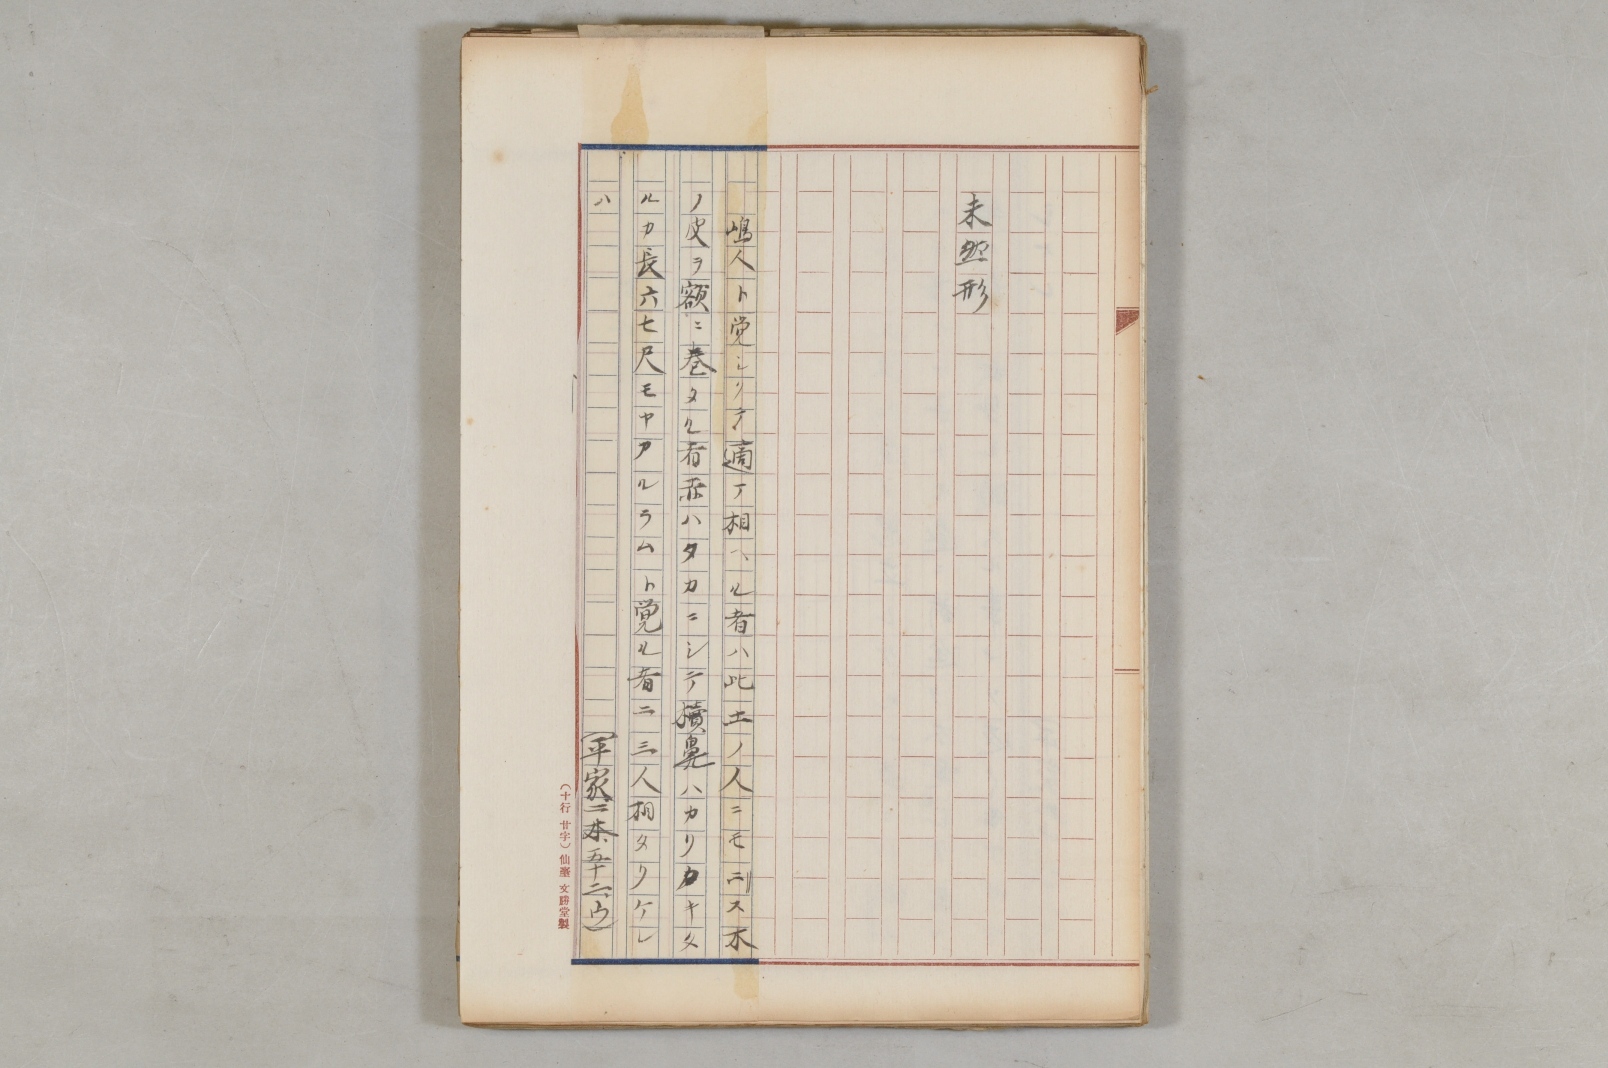 未然形
嶋人ト覚シクテ適マ相ヘル者ハ此土ノ人ニモニス木
ノ皮ヲ額ニ巻タル者赤ハタカニシテ犢鼻ハカリカキタ
ルカ長六七尺モヤアルラムト覚ル者ニ三人相タリケレ
ハ
(平家二本五十二ウ)
(十行廿字)仙臺 文勝堂製